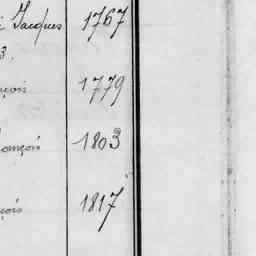 Jacques 1767
3.
çois 1779
ançois 1803
çois 1817